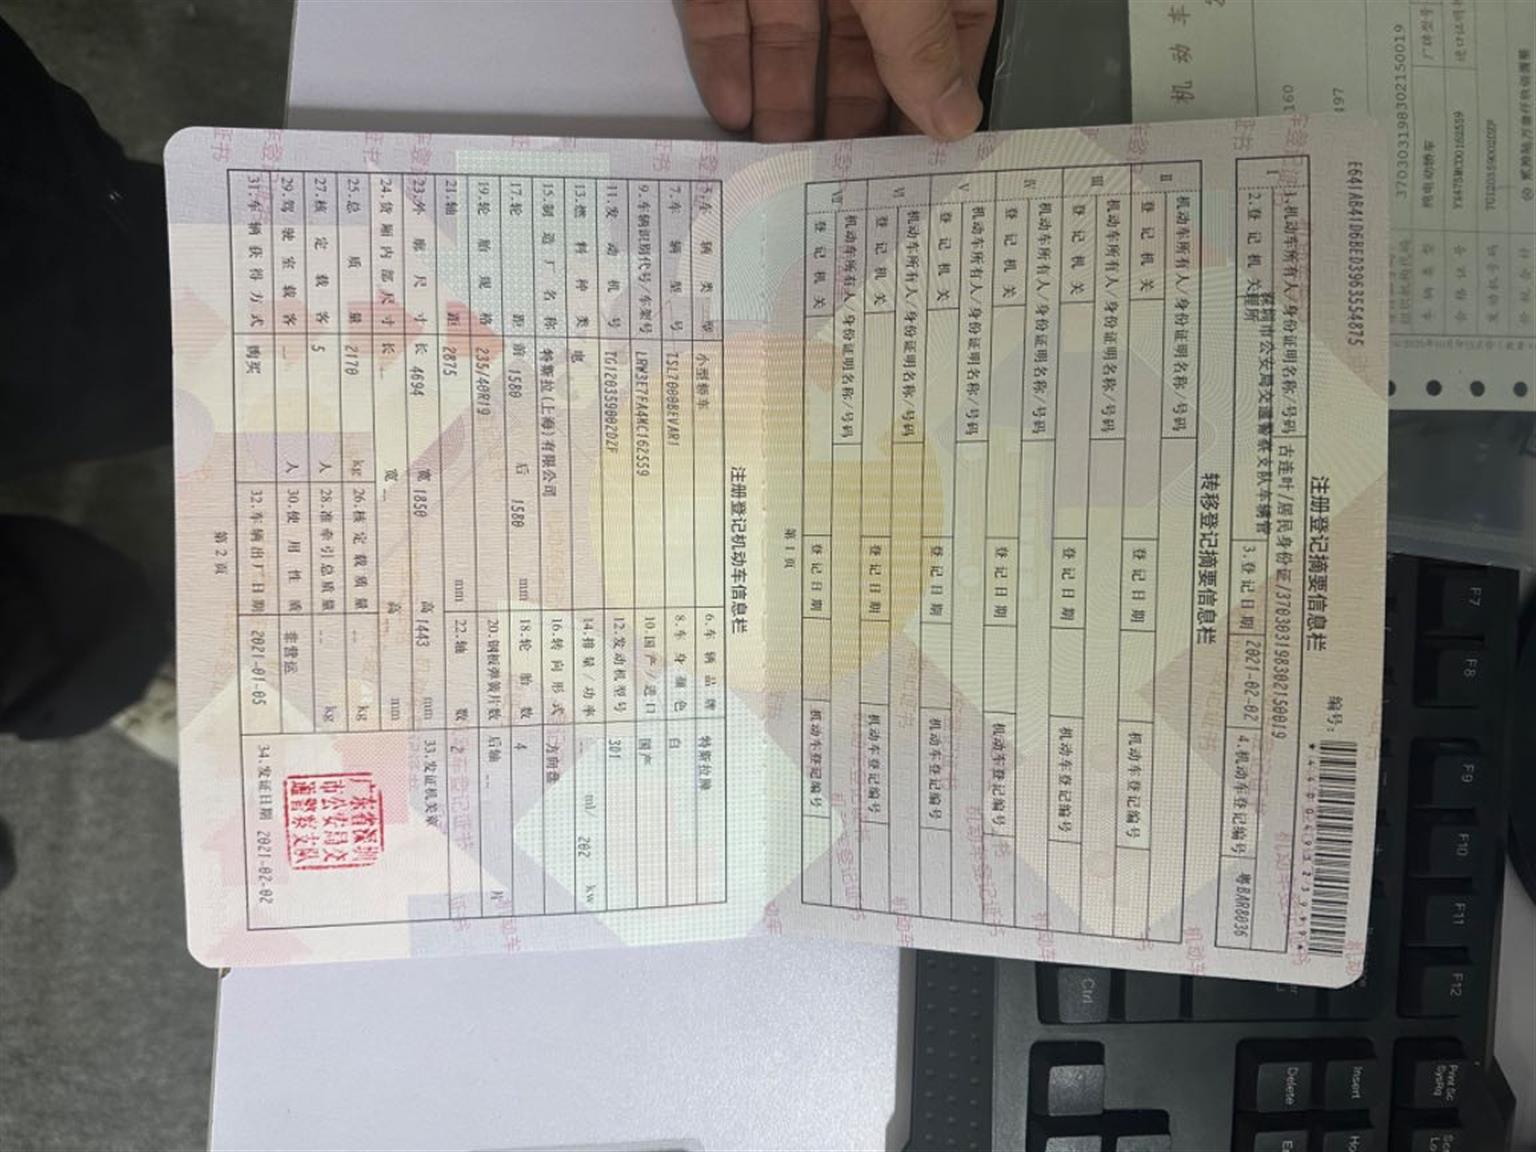 E641AB41D6BED3963554875
注册登记摘要信息栏
编号:
Ⅰ
1.机动车所有人/身份证明名称/号码 古连叶/居民身份证/370303198302150019
2.登记机关 深圳市公安局交通警察支队车辆管理所 3.登记日期 2021-02-02 4.机动车登记编号 粤BAR8036
转移登记摘要信息栏
Ⅱ 机动车所有人/身份证明名称/号码
登记机关 登记日期 机动车登记编号
Ⅲ 机动车所有人/身份证明名称/号码
登记机关 登记日期 机动车登记编号
Ⅳ 机动车所有人/身份证明名称/号码
登记机关 登记日期 机动车登记编号
Ⅴ 机动车所有人/身份证明名称/号码
登记机关 登记日期 机动车登记编号
Ⅵ 机动车所有人/身份证明名称/号码
登记机关 登记日期 机动车登记编号
Ⅶ 机动车所有人/身份证明名称/号码
登记机关 登记日期 机动车登记编号
第1页
注册登记机动车信息栏
5.车辆类型 小型轿车 6.车辆品牌 特斯拉牌
7.车辆型号 TSL7000BEVAR1 8.车身颜色 白
9.车辆识别代号/车架号 LRW3E7FA4MC162559 10.国产/进口 国产
11.发动机号 TG120359002DZF 12.发动机型号 3D1
13.燃料种类 电 14.排量/功率 ml/ 202 kw
15.制造厂名称 特斯拉(上海)有限公司 16.转向形式 方向盘
17.轮距 前 1580 后 1580 mm 18.轮胎数 4
19.轮胎规格 235/40R19 20.钢板弹簧片数 后轴 -- 片
21.轴距 2875 mm 22.轴数 2
23.外廓尺寸 长 4694 宽 1850 高 1443 mm 33.发证机关章
24.货厢内部尺寸 长 -- 宽 -- 高 -- mm
25.总质量 2170 kg 26.核定载质量 -- kg
27.核定载客 5 人 28.准牵引总质量 -- kg
29.驾驶室载客 -- 人 30.使用性质 非营运
31.车辆获得方式 购买 32.车辆出厂日期 2021-01-05 34.发证日期 2021-02-02
广东省深圳
市公安局交
通警察支队
第2页
370303198302150019
F7
F8
F9
F10
F11
F12
Ctrl
Insert
Delete
Print Sc
SysRq